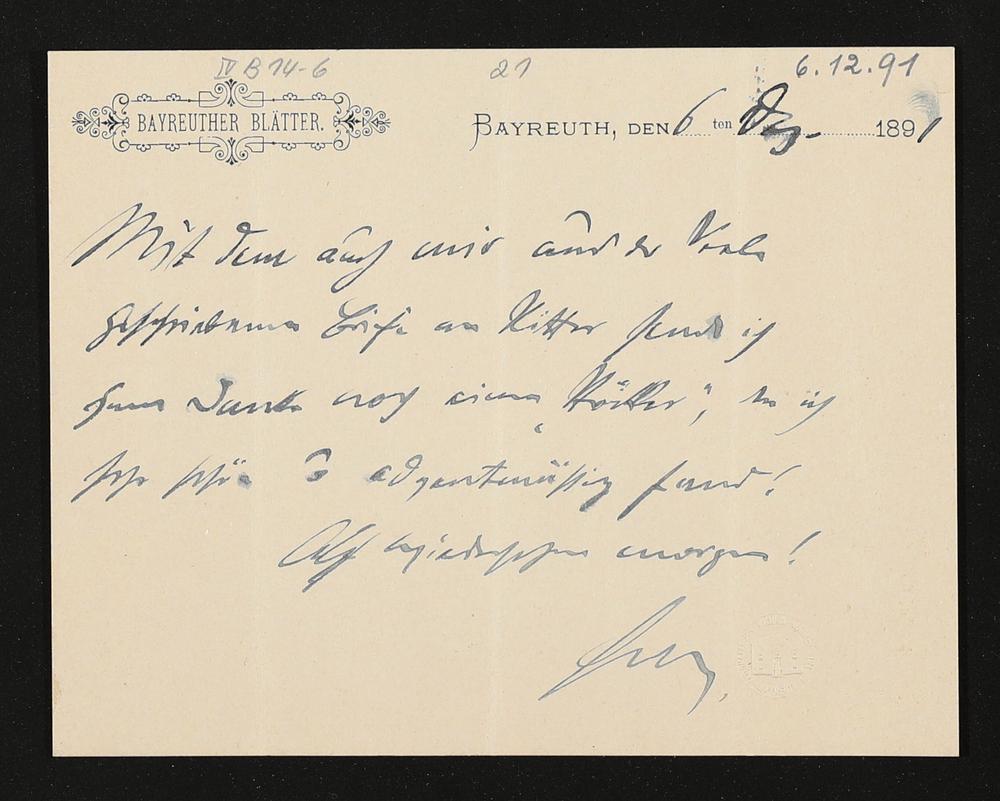 IV B 14-6 21 6.12.91
BAYREUTHER BLÄTTER. BAYREUTH, DEN 6 ten Dez. 1891
Mit dem auch mir aus der Seele
geschriebenen Briefe an Ritter sende ich
Ihnen Dank noch einen „ ", den ich
sehr schön & adventmäßig fand!
Auf Wiedersehen morgen!